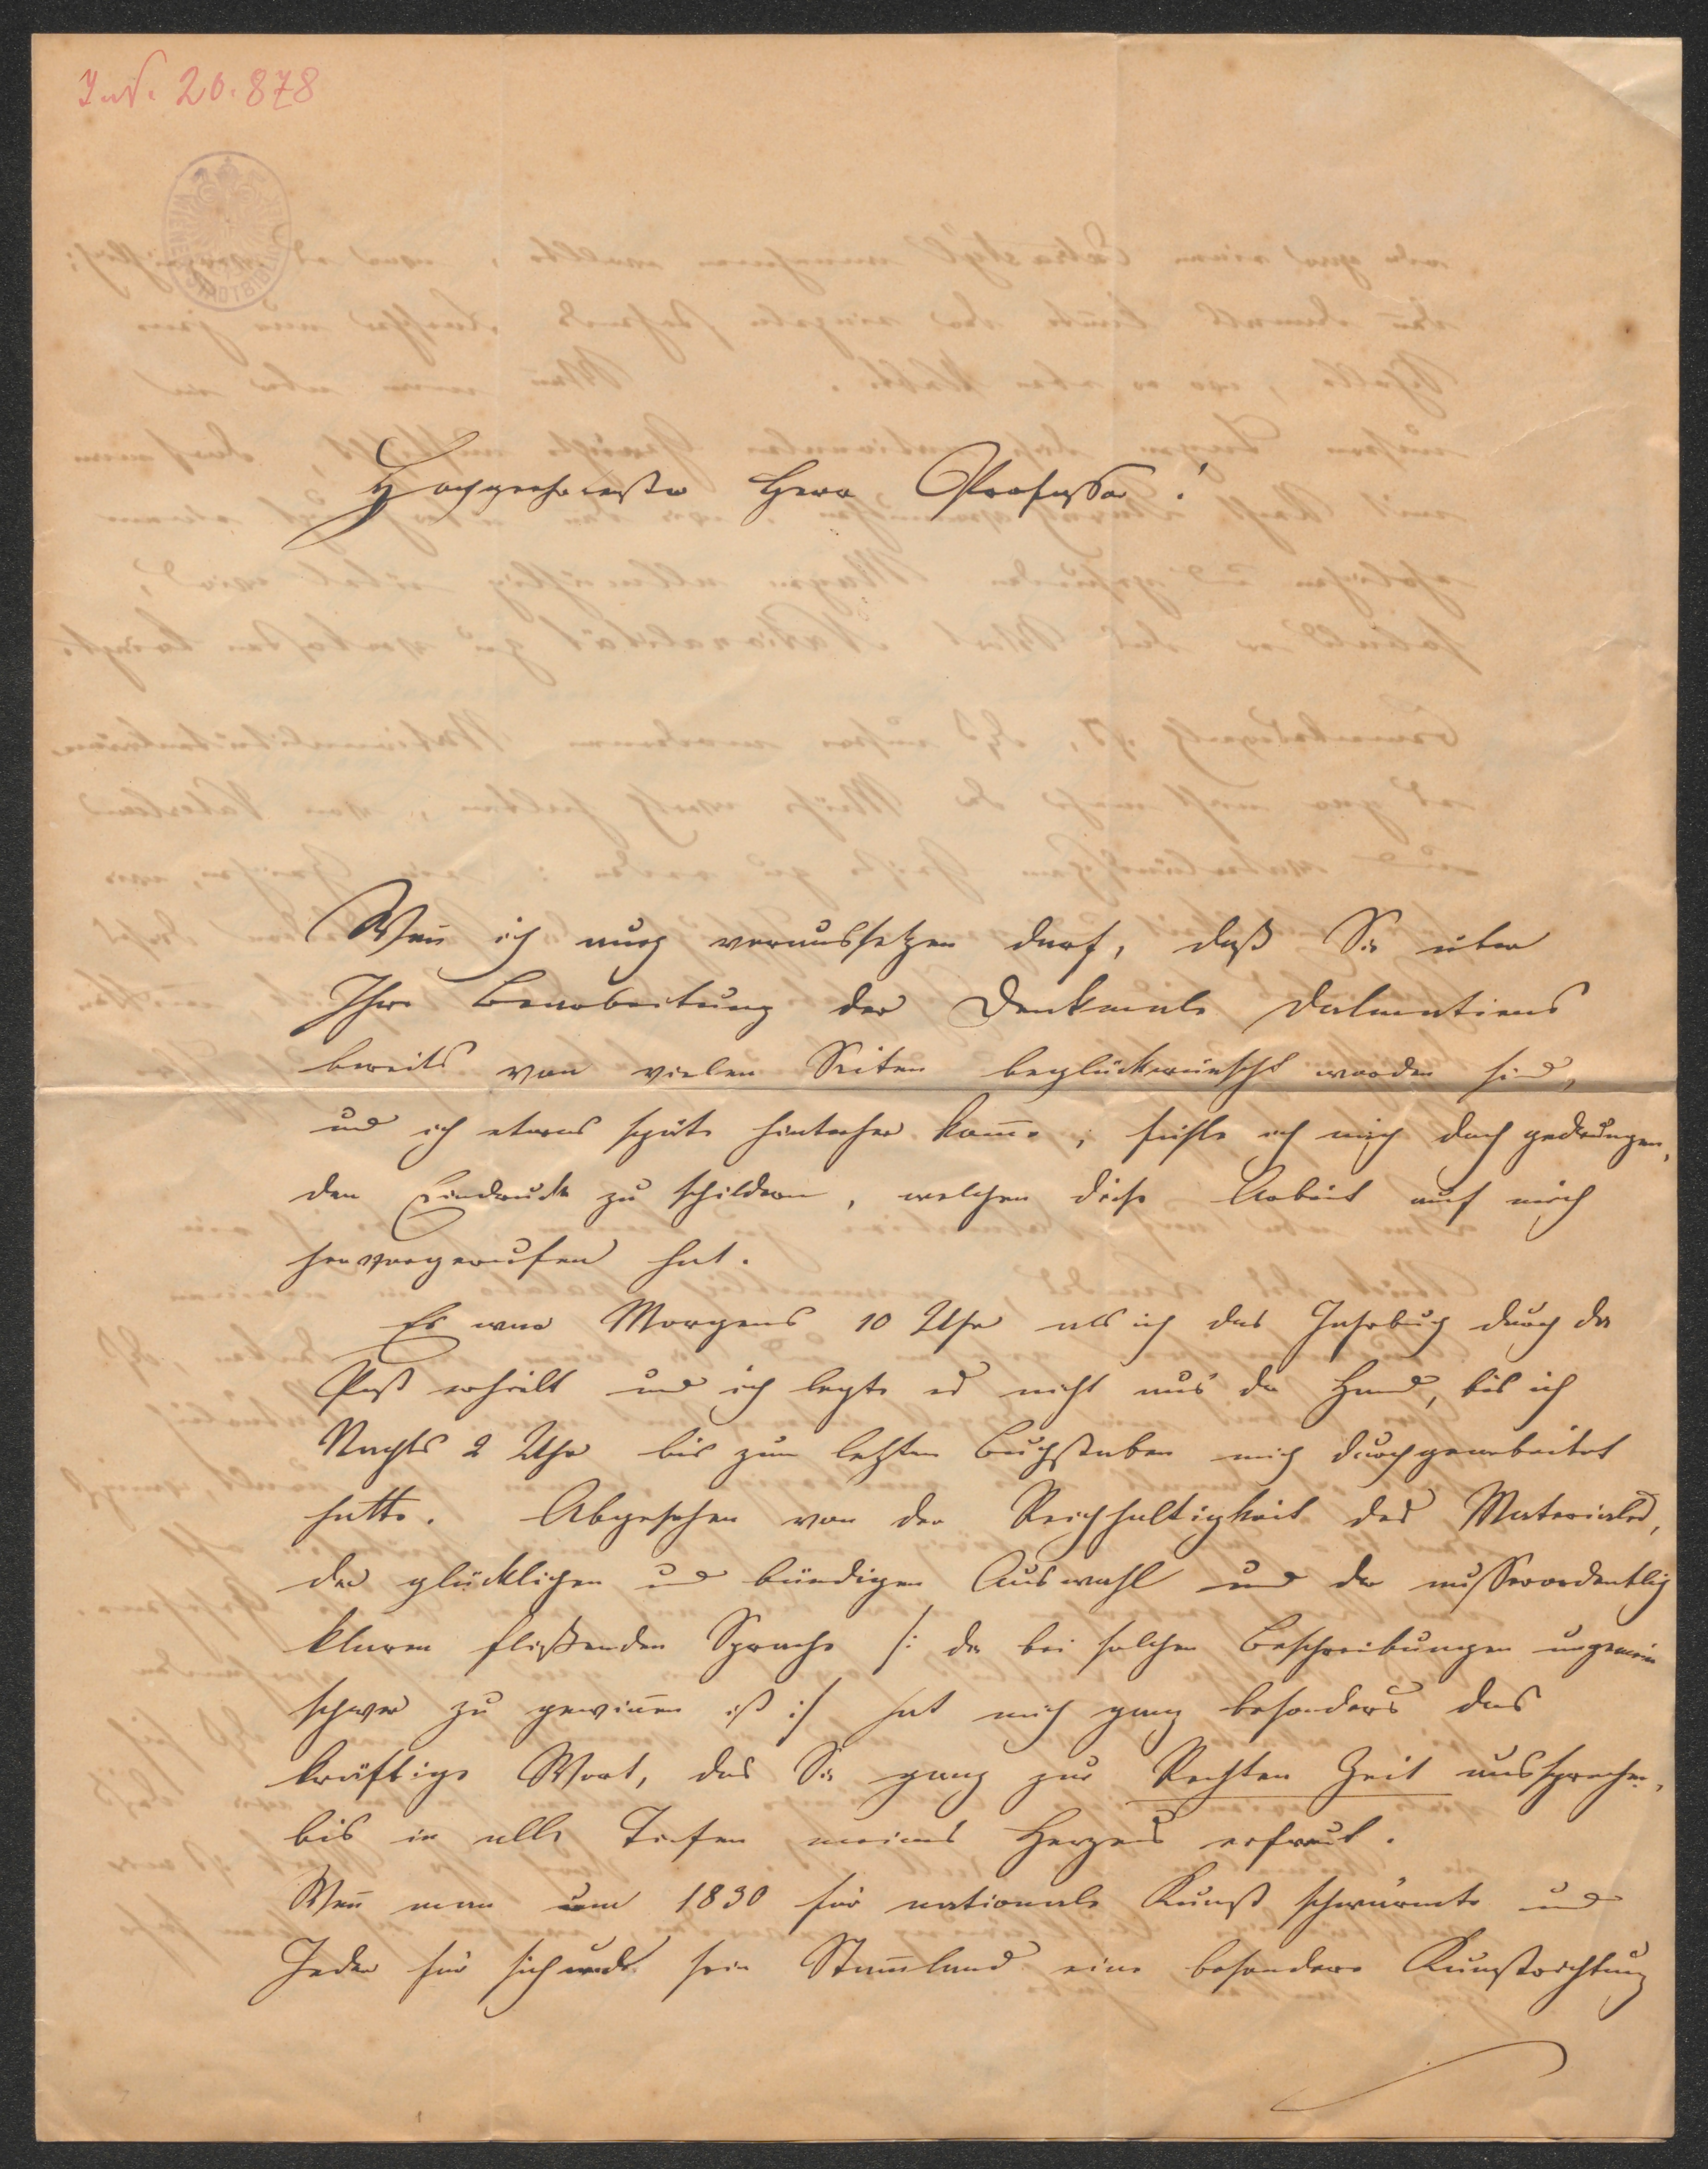 I.N. 20.878
Hochgeehrtester Herr Professor!
Wen̄ ich auch voraussetzen darf, daß Sie über
Ihre Bearbeitung der Denkmale Dalmatiens
bereits von vielen Seiten beglückwünscht worden sind,
und ich etwas spät hinterher kom̄e, fühle ich mich doch gedrungen,
den Eindruck zu schildern, welchen diese Arbeit auf mich
hervorgerufen hat.
Es war Morgens 10 Uhr als ich das Jahrbuch durch die
Post erhielt und ich legte es nicht aus der Hand, bis ich
Nachts 2 Uhr bis zum letzten Buchstaben mich durchgearbeitet
hatte. Abgesehen von der Reichhaltigkeit des Materiales,
der glücklichen und bündigen Auswahl und der ausserordentlich
klaren fließenden Sprache /: die bei solchen Beschreibungen ungemein
schwer zu gewin̄en ist :/ hat mich ganz besonders das
kräftige Wort, das Sie ganz zur Rechten Zeit aussprechen,
bis in alle Tiefen meines Herzens erfreut.
Wen̄ man um 1830 für nationale Kunst schwärmte und
Jeder für sich und sein Stam̄land eine besondere Kunstrichtung